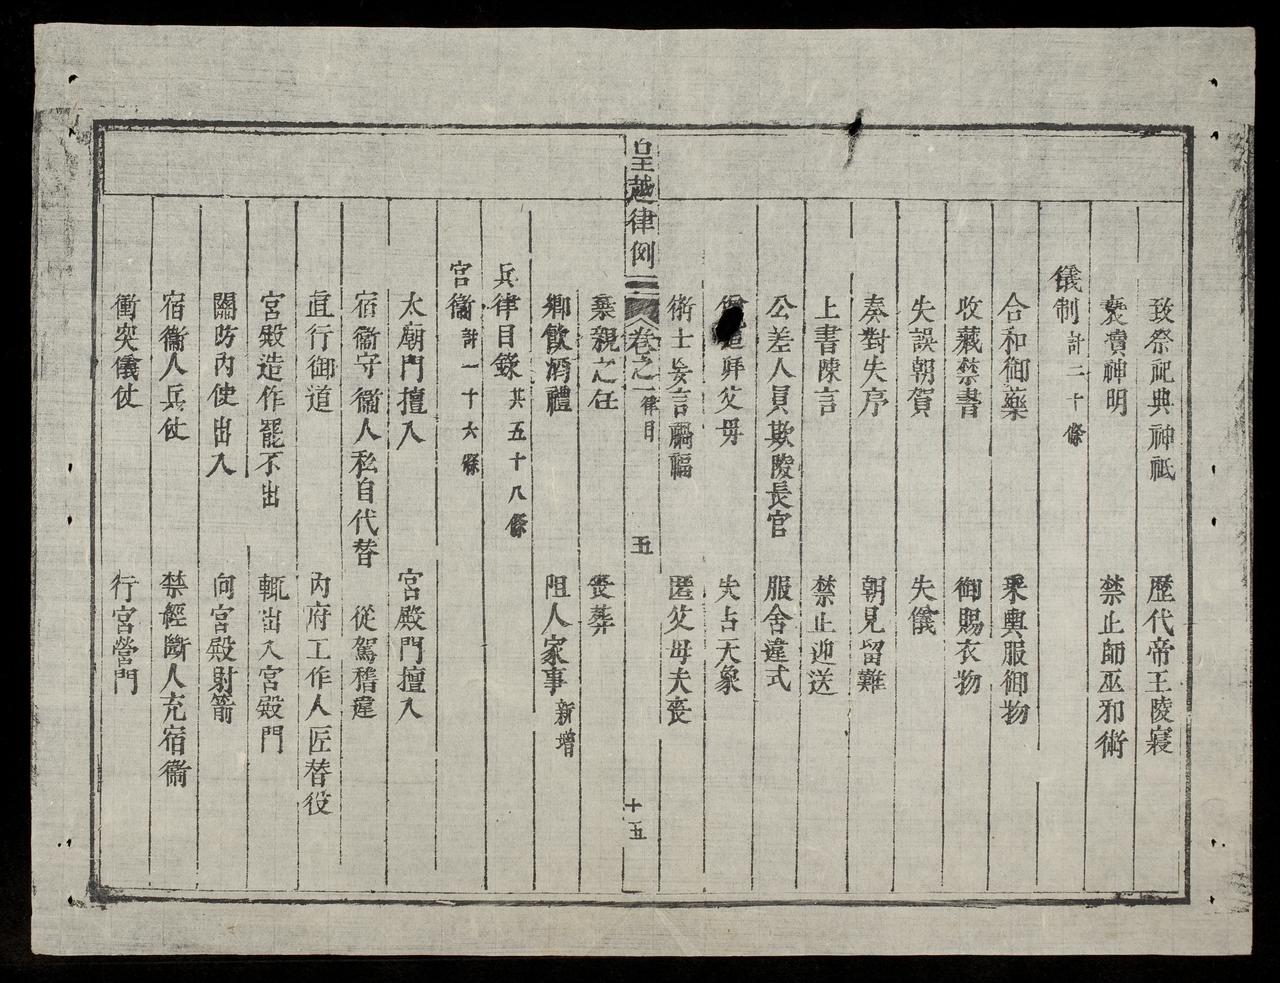 致祭祀典神祇　歷代帝王陵寢
褻瀆神明　禁止師巫邪術
儀制計二十條
合和御藥　乘輿服御物
收藏禁書　御賜衣物
失誤朝賀　失儀
奏對失序　朝見留難
上書陳言　禁止迎送
公差人員欺陵長官　服舍違式
拜父母　失占天象
術士妄言禍福　匿父母夫喪
皇越律例　卷之一　律目　五　十五
棄親之任　喪葬
鄉飲酒禮　阻人家事新增
兵律目錄共五十八條
宮衛計一十六條
太廟門擅入　宮殿門擅入
宿衛守衛人私自代替　從駕稽違
直行御道　內府工作人匠替役
宮殿造作罷不出　輒出入宮殿門
關防內使出入　向宮殿射箭
宿衛人兵仗　禁經斷人充宿衛
衝突儀仗　行宮營門